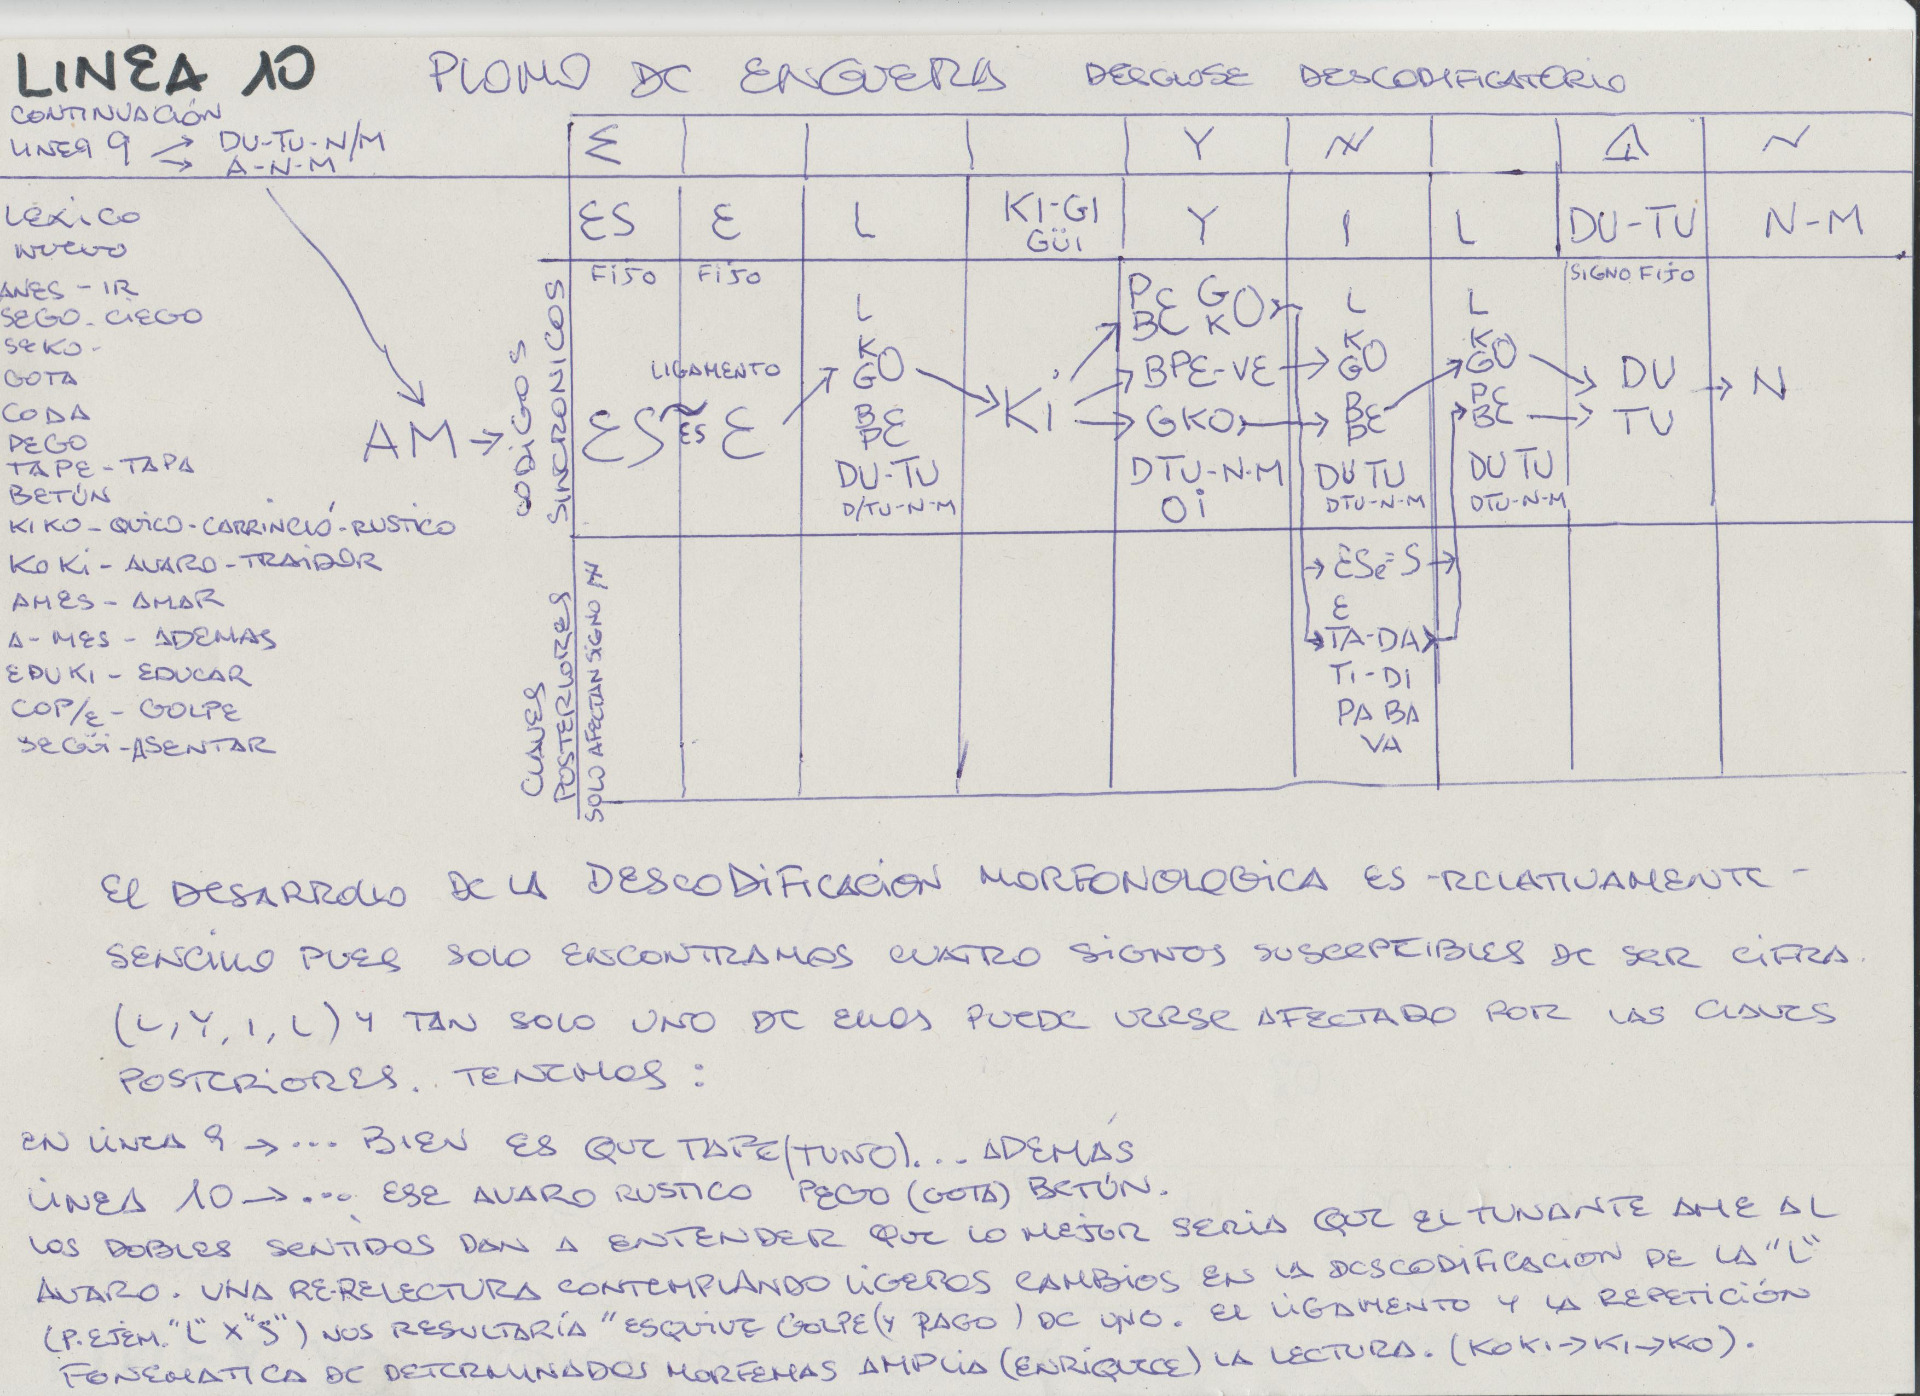 LINEA 10 PLOMO DE ENGUERA DESGLOSE DESCODIFICATORIO
CONTINUACIÓN
LINEA 9 → DU-TU-N/M
→ A-N-M
Σ | | | | Y | И | | | N
ES | E | L | KI-GI GÜI | Y | I | L | DU-TU | N-M
LEXICO
NUEVO
ANES - IR
SEGO - CIEGO
SEKO -
GOTA
CODA
PEGO
TAPE - TAPA
BETÚN
KIKO - QUICO - CARRINCLÓ - RUSTICO
KOKi - AVARO - TRAIDOR
AMES - AMAR
A-MES - ADEMAS
EDUKI - EDUCAR
COP/E - GOLPE
SEGÜI - ASENTAR
AM →
CODIGOS SINCRONICOS
FIJO FIJO SIGNO FIJO
LIGAMENTO
ES ≈ ES E
L
KO
GO
BE
PE
DU-TU
D/TU-N-M
Ki
PE GO
BE KO
BPE-VE
GKO
DTU-N-M
Oi
L
KO
GO
BE
PE
DU TU
DTU-N-M
L
KO
GO
PE
BE
DU TU
DTU-N-M
DU
TU
→ N
CLAVES POSTERIORES
SOLO AFECTAN SIGNO И
→ ESe=S →
E
TA-DA
Ti-Di
PA BA
VA
El DESARROLLO DE LA DESCODIFICACIÓN MORFONOLOGICA ES -RELATIVAMENTE-
SENCILLO PUES SOLO ENCONTRAMOS CUATRO SIGNOS SUSCEPTIBLES DE SER CIFRA
(L, Y, I, L) Y TAN SOLO UNO DE ELLOS PUEDE VERSE AFECTADO POR LAS CLAVES
POSTERIORES. TENEMOS:
EN LINEA 9 → ... BIEN ES QUE TAPE (TUNO)... ADEMÁS
LINEA 10 → ... ESE AVARO RUSTICO PEGO (GOTA) BETÚN.
LOS DOBLES SENTIDOS DAN A ENTENDER QUE LO MEJOR SERIA QUE EL TUNANTE AME AL
AVARO. UNA RE-RELECTURA CONTEMPLANDO LIGEROS CAMBIOS EN LA DESCODIFICACION DE LA "L"
(P. EJEM. "L" X "S") NOS RESULTARÍA "ESQUIVE GOLPE (Y PAGO) DE UNO. EL LIGAMENTO Y LA REPETICIÓN
FONEMATICA DE DETERMINADOS MORFEMAS AMPLIA (ENRIQUECE) LA LECTURA. (KOKI→KI→KO).